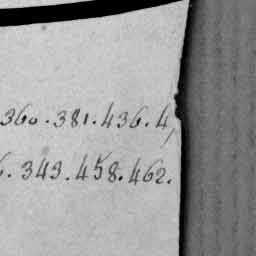 360.381.436.4,
6.349.458.462.